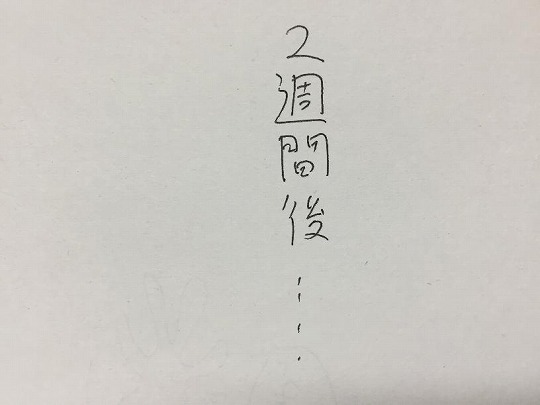 2週間後……